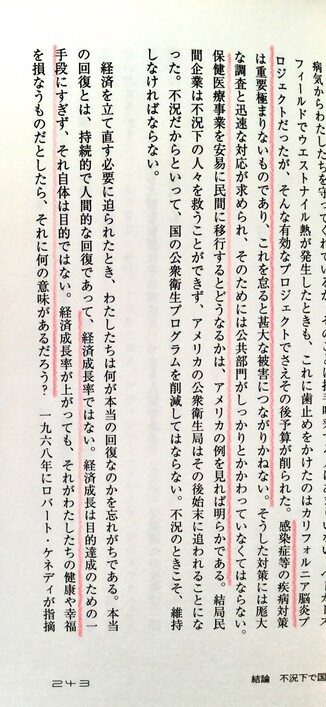 病気からわたしたちを守ってくれているが、
フィールドでウエストナイル熱が発生したときも、これに歯止めをかけたのはカリフォルニア脳炎プ
ロジェクトだったが、そんな有効なプロジェクトでさえその後予算が削られた。感染症等の疾病対策
は重要極まりないものであり、これを怠ると甚大な被害につながりかねない。そうした対策には厖大
な調査と迅速な対応が求められ、そのためには公共部門がしっかりとかかわっていなくてはならない。
保健医療事業を安易に民間に移行するとどうなるかは、アメリカの例を見れば明らかである。結局民
間企業は不況下の人々を救うことができず、アメリカの公衆衛生局はその後始末に追われることにな
った。不況だからといって、国の公衆衛生プログラムを削減してはならない。不況のときこそ、維持
しなければならない。
経済を立て直す必要に迫られたとき、わたしたちは何が本当の回復なのかを忘れがちである。本当
の回復とは、持続的で人間的な回復であって、経済成長率ではない。経済成長は目的達成のための一
手段にすぎず、それ自体は目的ではない。経済成長率が上がっても、それがわたしたちの健康や幸福
を損なうものだとしたら、それに何の意味があるだろう？　一九六八年にロバート・ケネディが指摘
243
結論　不況下で国